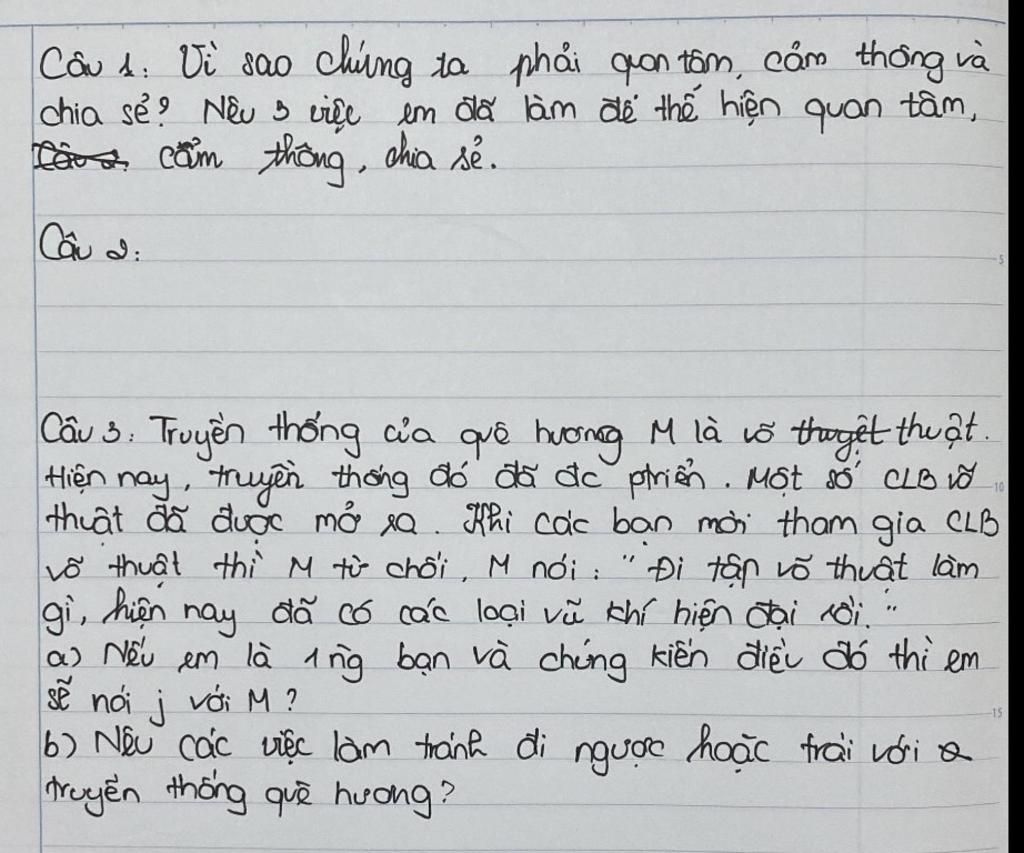 Câu 1: Vì sao chúng ta phải quan tâm, cảm thông và
chia sẻ? Nêu 3 việc em đã làm để thể hiện quan tâm,
Câu 2. cảm thông, chia sẻ.
Câu 2:
Câu 3: Truyền thống của quê hương M là võ thuyết thuật.
Hiện nay, truyền thống đó đã đc ptriển. Một số CLB võ
thuật đã được mở ra. Khi các bạn mời tham gia CLB
võ thuật thì M từ chối, M nói: "Đi tập võ thuật làm
gì, hiện nay đã có các loại vũ khí hiện đại rồi."
a) Nếu em là 1 ng bạn và chứng kiến điều đó thì em
sẽ nói j với M?
b) Nêu các việc làm tránh đi ngược hoặc trái với
truyền thống quê hương?
5
10
15